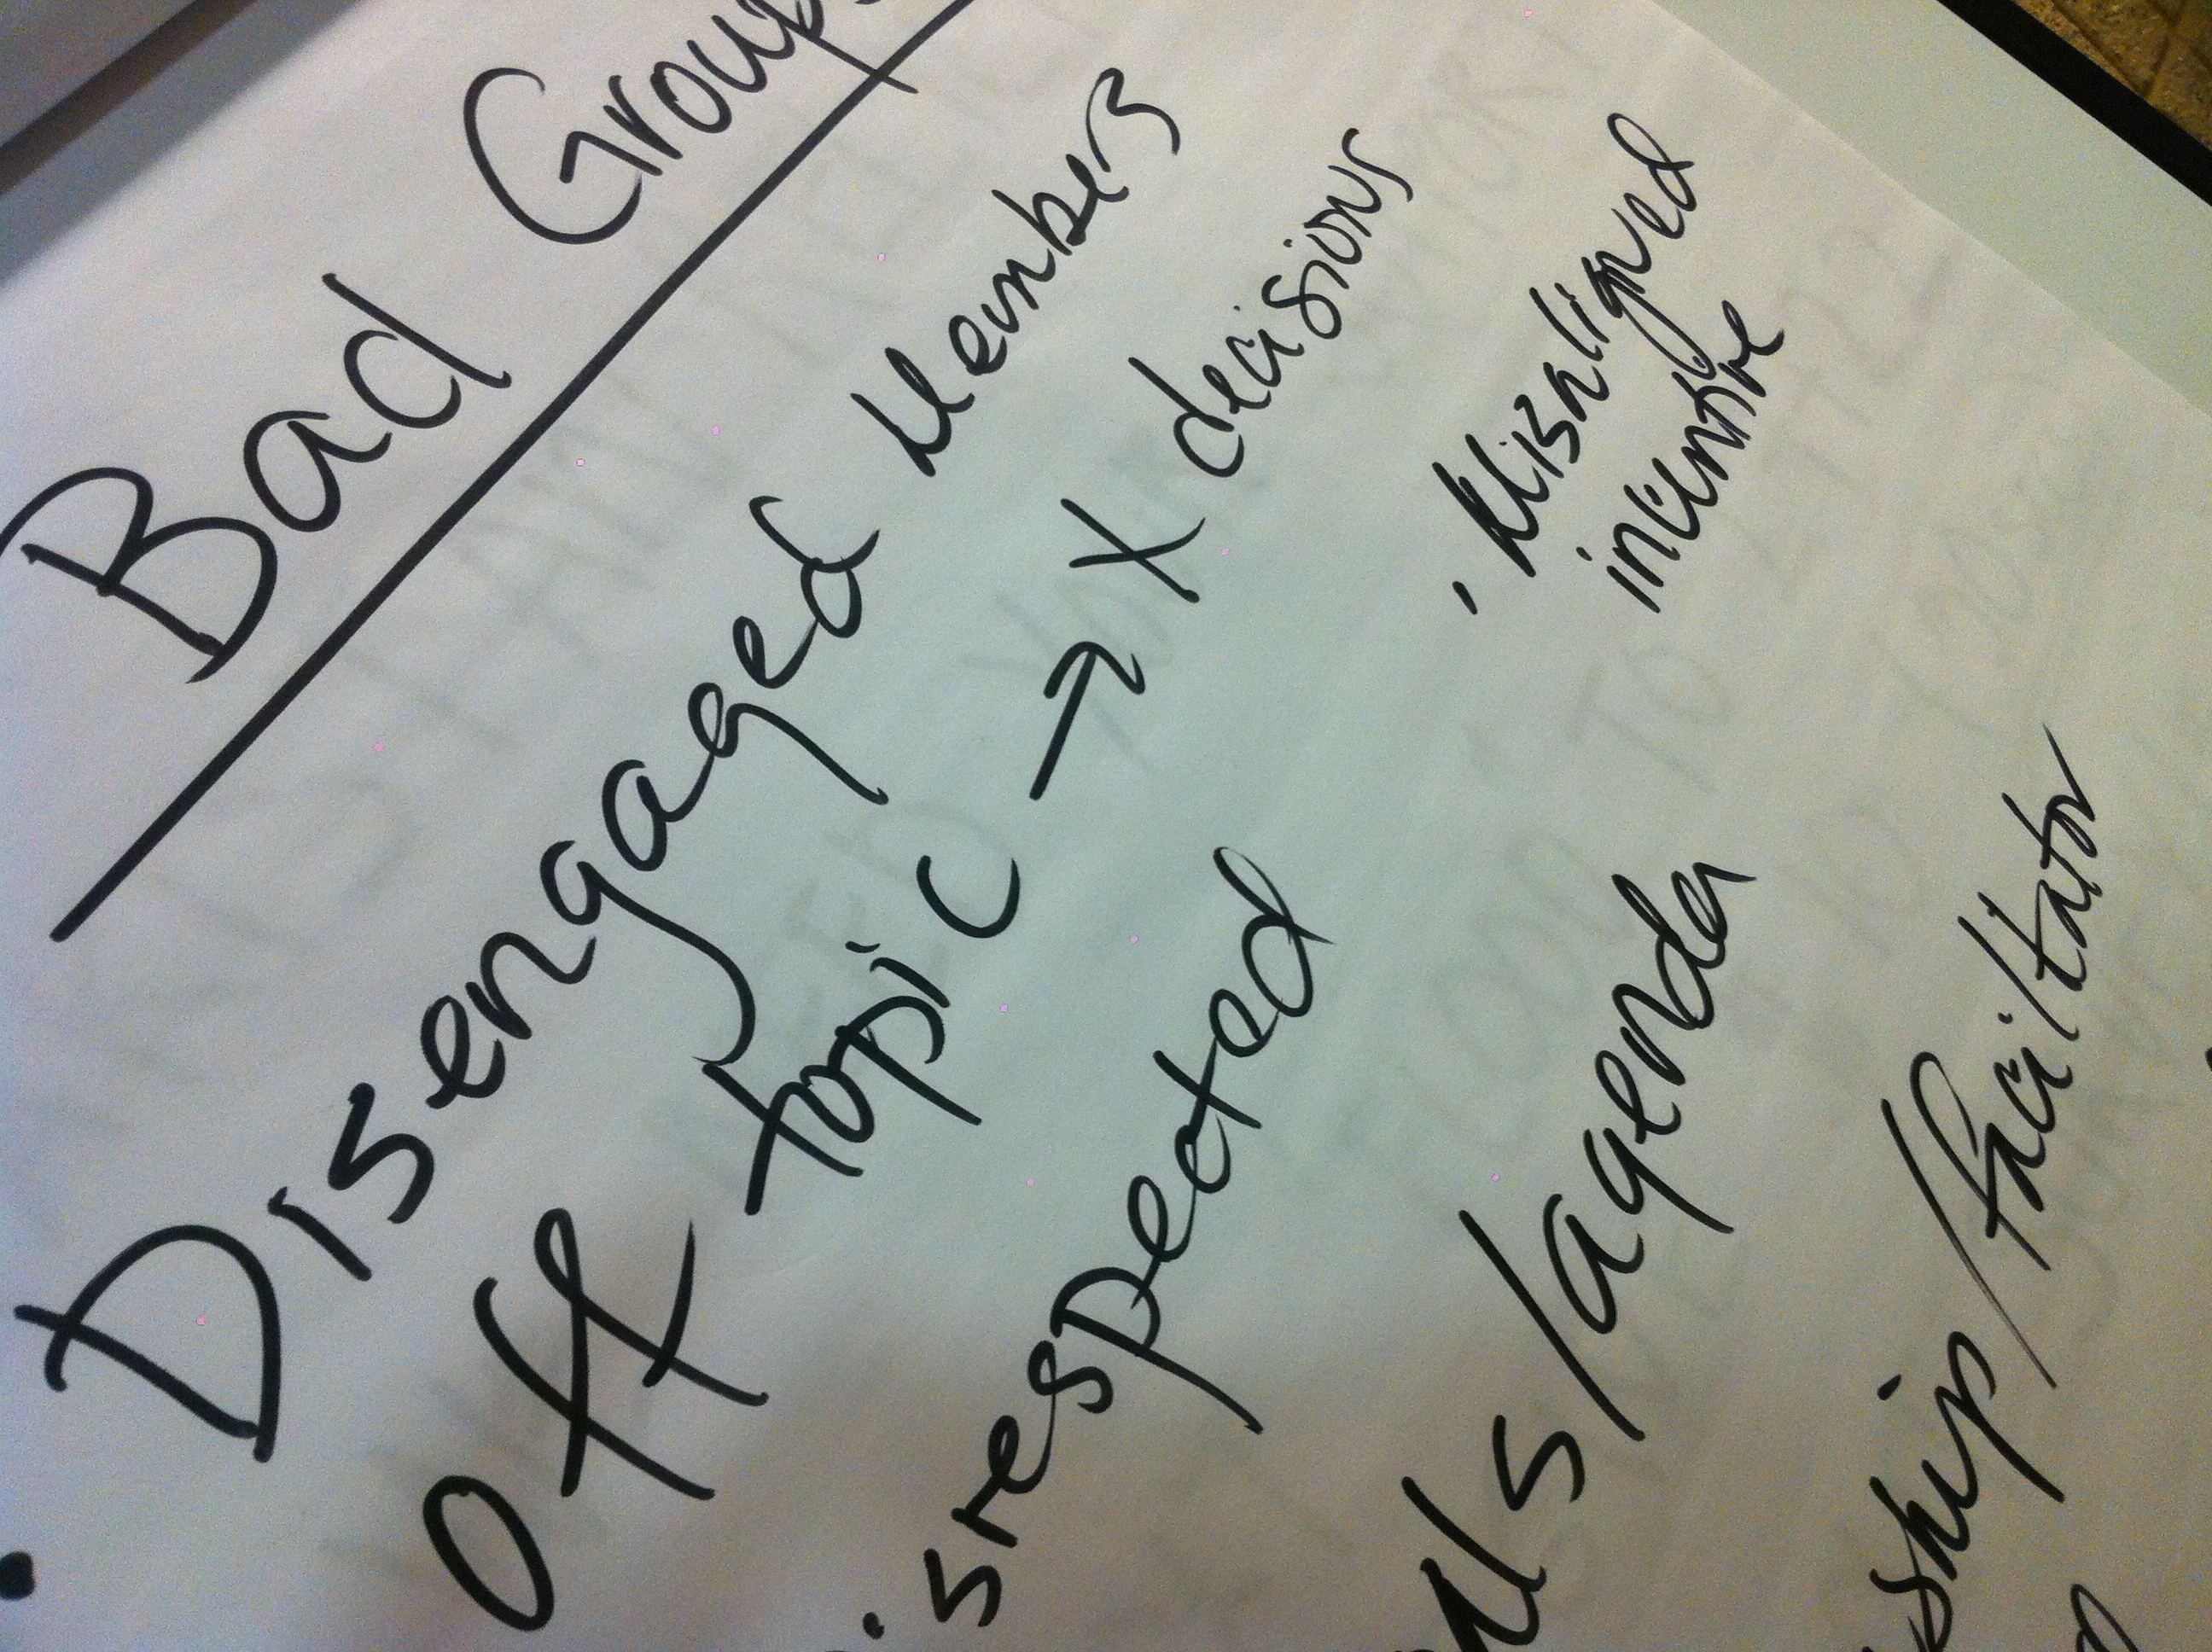 Bad Groups
• Disengaged Members
off topic → X decisions
isrespected
• Misaligned
incentive
ls/agenda
ship/facilitator